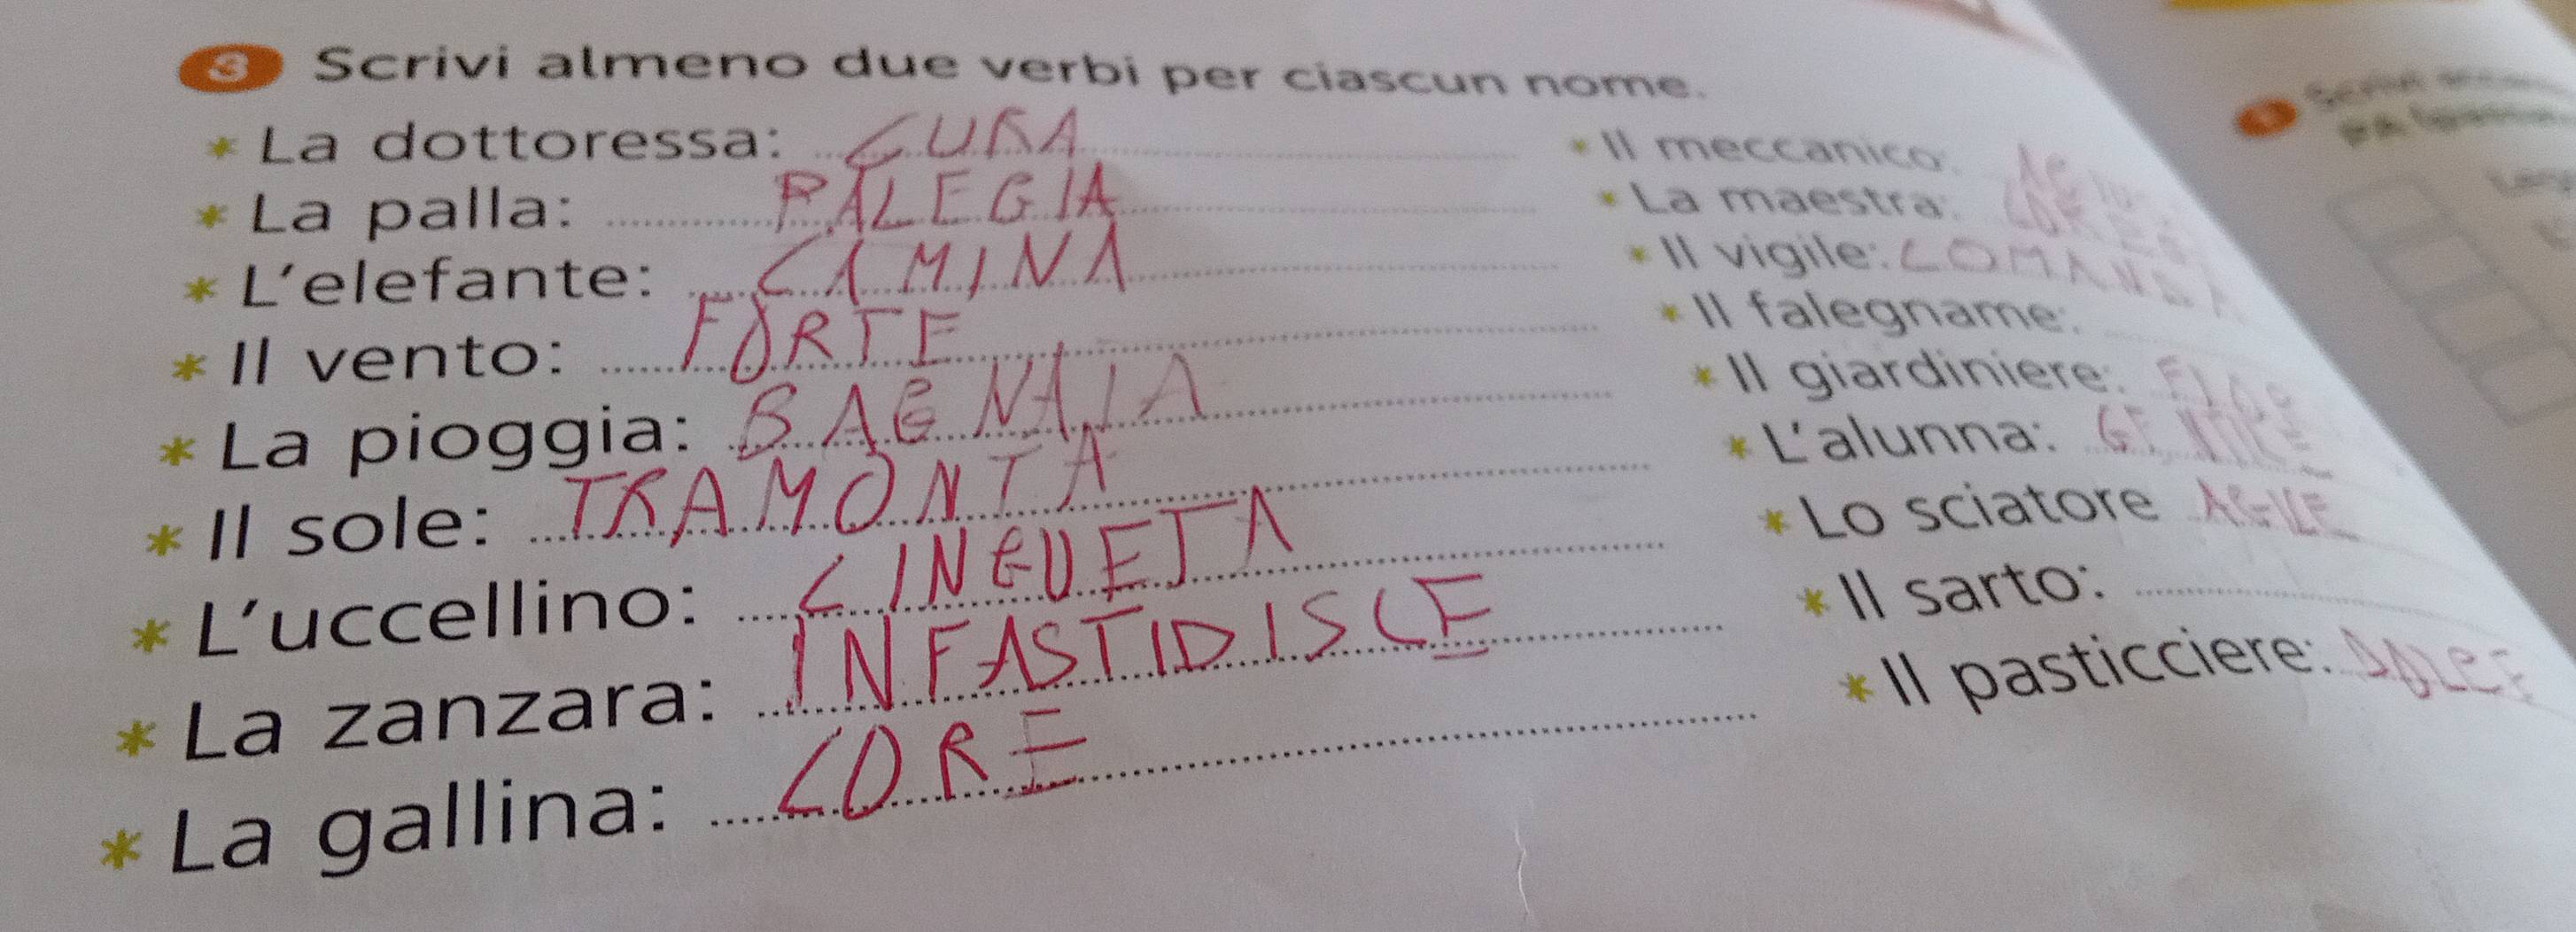 3 Scrivi almeno due verbi per ciascun nome.
* La dottoressa: CURA
* La palla: PALEGIA
* L'elefante: CAMINA
* Il vento: FORTE
* La pioggia: BAGNAIA
* Il sole: TRAMONTA
* L'uccellino: CINGUETA
* La zanzara: INFASTIDISCE
* La gallina: CORE
* Il meccanico:
* La maestra:
* Il vigile: COMANDA
* Il falegname:
* Il giardiniere:
* L'alunna: GENTILE
* Lo sciatore AGILE
* Il sarto:
* Il pasticciere: DOLCE
1 Scrivi